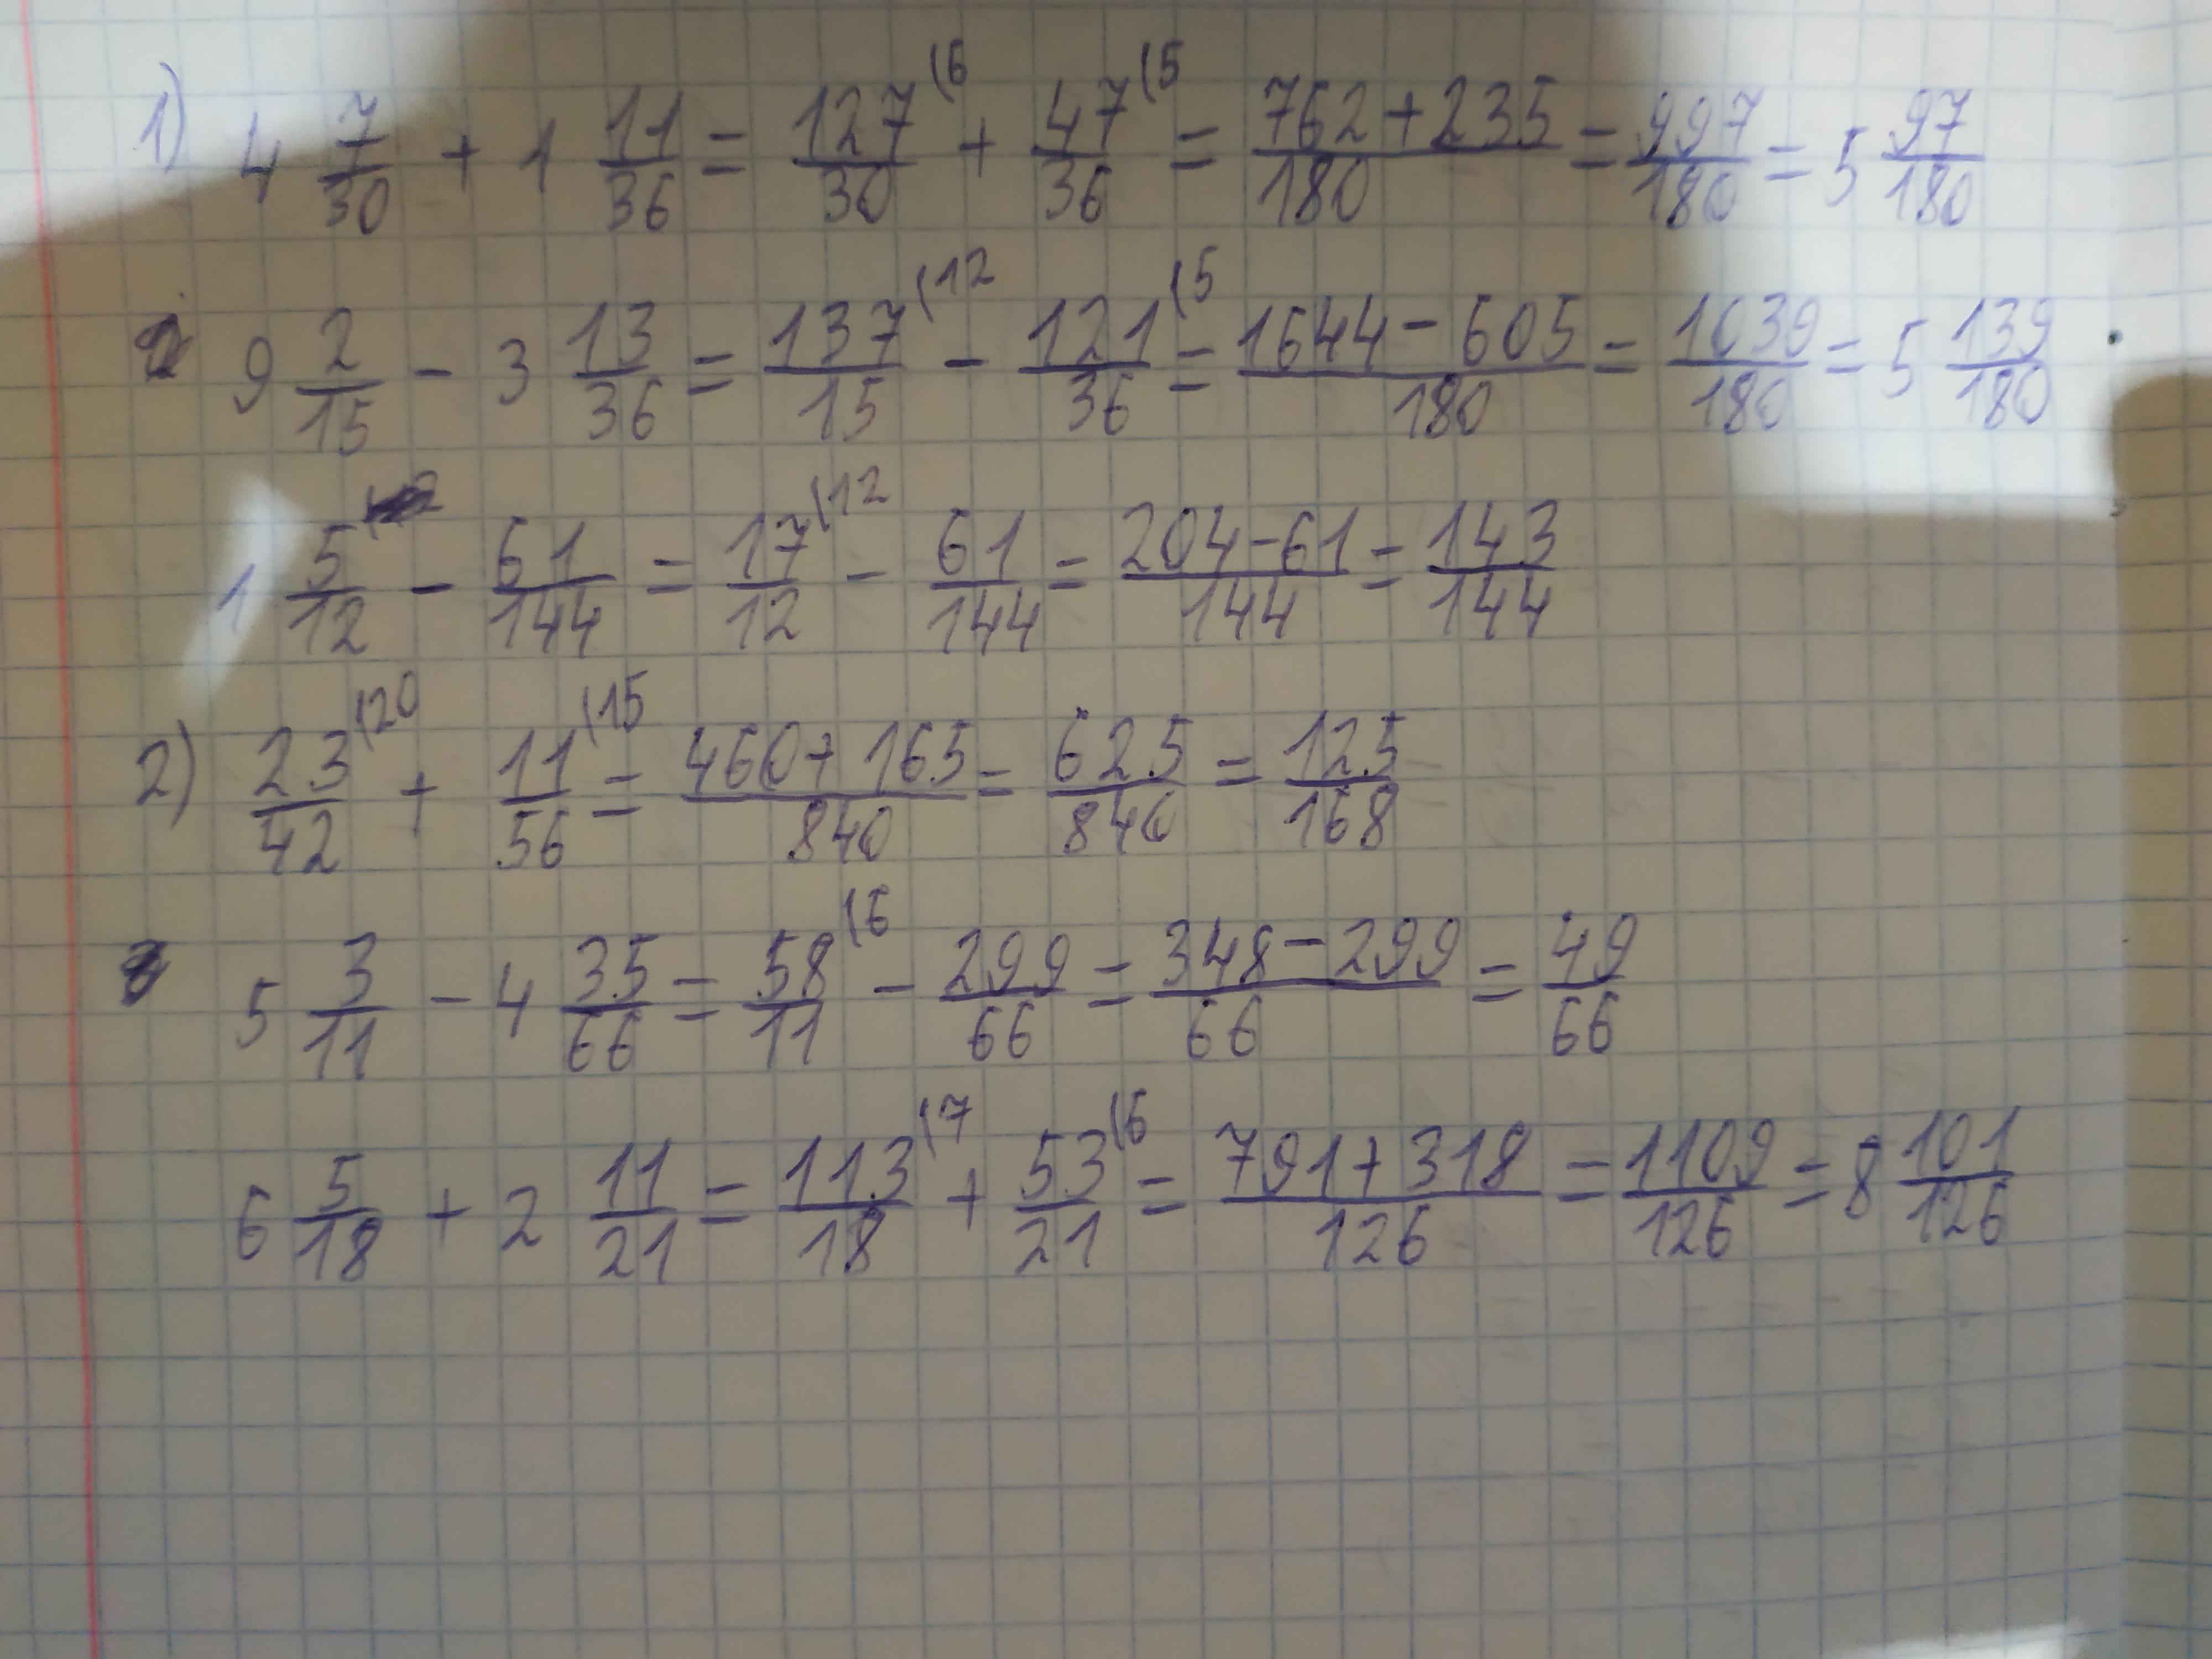 1) 4 7/30 + 1 11/36 = 127/30 (6 + 47/36 (5 = 762+235/180 = 997/180 = 5 97/180
9 2/15 - 3 13/36 = 137/15 (12 - 121/36 (5 = 1644-605/180 = 1039/180 = 5 139/180
1 5/12 - 61/144 = 17/12 (12 - 61/144 = 204-61/144 = 143/144
2) 23/42 (20 + 11/56 (15 = 460+165/840 = 625/840 = 125/168
5 3/11 - 4 35/66 = 58/11 (6 - 299/66 = 348-299/66 = 49/66
6 5/18 + 2 11/21 = 113/18 (7 + 53/21 (6 = 791+318/126 = 1109/126 = 8 101/126